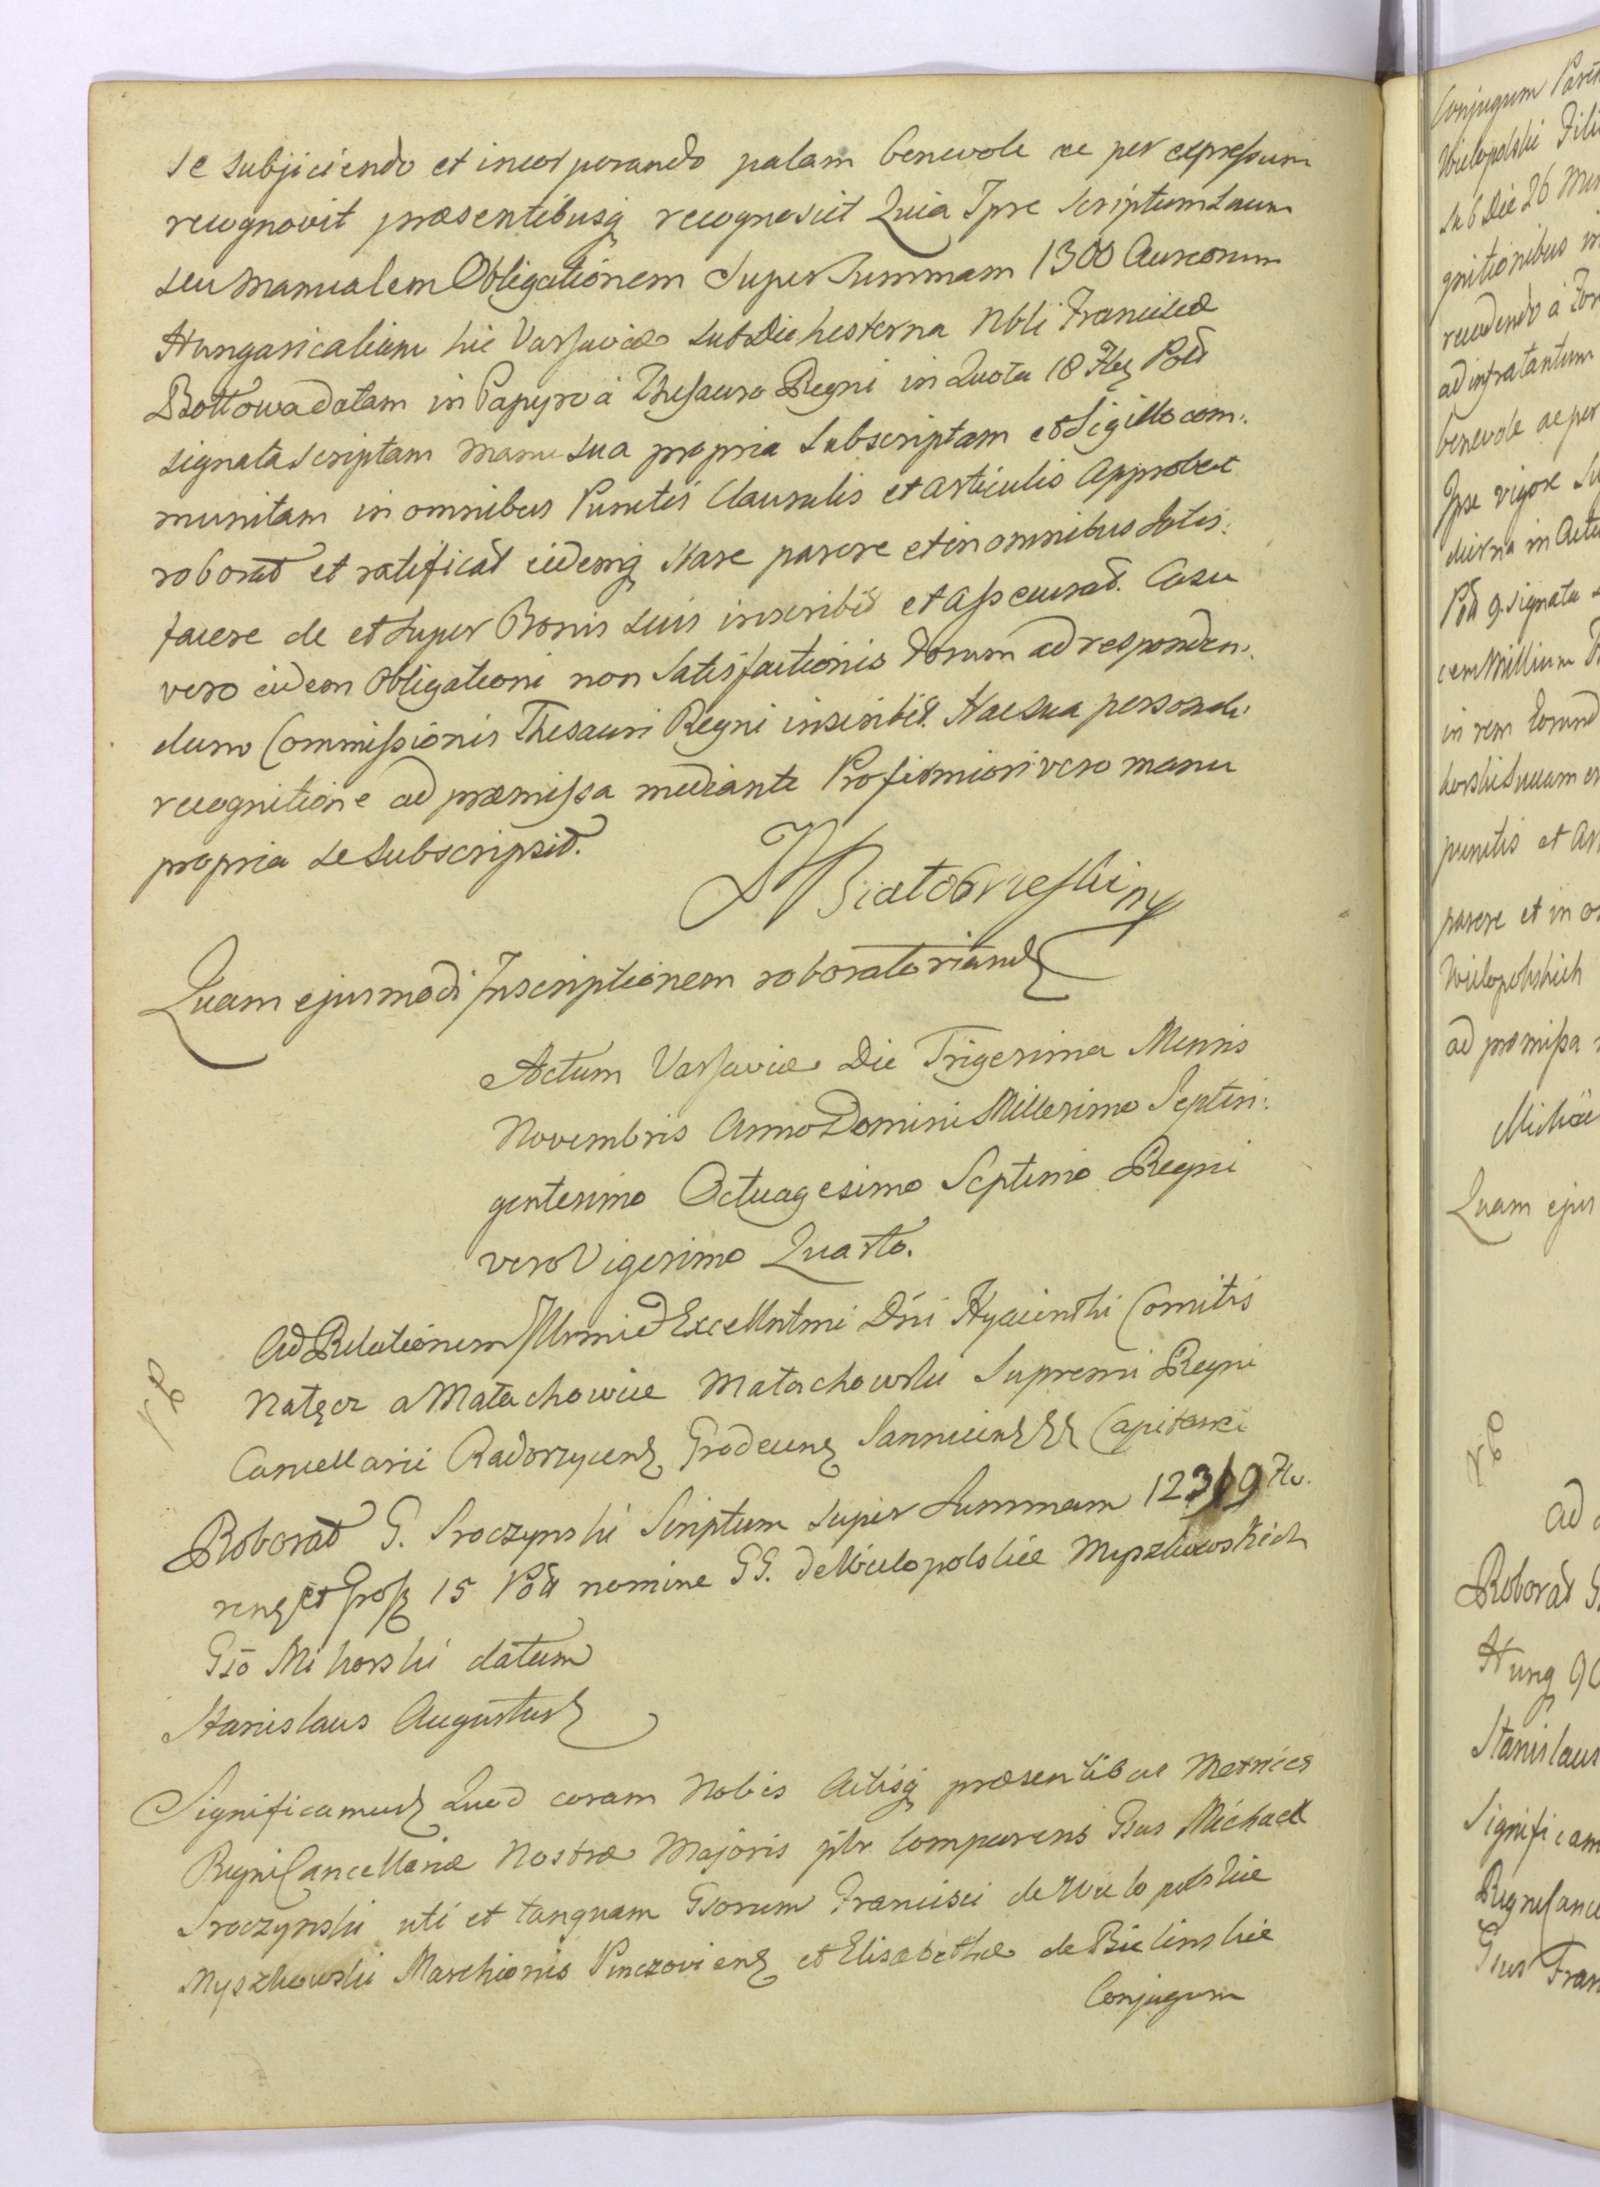 se subjiciendo et incorporando palam benevole ac per expressum
recognovit præsentibusq recognoscit Quia Ipse Scriptum suum
seu manualem Obligationem Super Summam 1300 Aureorum
Hungaricalium hic Varsaviæ sub Die hesterna Nbli Franciscæ
Bottowa datam in Papyro à Thesauro Regni in Quota 18 Flor Pol
signata scriptam manu sua propria subscriptam et Sigillo com:
munitam in omnibus Punctis Clausulis et Articulis Approbat
roborat et ratificat eidemq stare parere et in omnibus satis:
facere de et super Bonis suis inscribit et assecurat. Casu
vero eidem Obligationi non Satisfactionis Forum ad responden:
dum Commissionis Thesauri Regni inscribit. Hac sua personali
recognitione ad præmissa mediante Pro firmiori vero manu
propria se subscripsit.
Białobrzeski mp
Quam ejusmodi Inscriptionem roboratoriam
Actum Varsaviæ Die Trigesima Mensis
Novembris Anno Domini Millesimo Septin:
gentesimo Octuagesimo Septimo Regni
vero Vigesimo Quarto.
Ad Relationem Illrmi Excellntmi Dni Hyacinthi Comitis
Nałęcz a Małachowice Małachowski Supremi Regni
Cancellarii Radoszycen Grodecen Sannicen Capitanei
Roborat G. Sroczynski Scriptum super Summam 12319 Flo
ren et Gross 15 Pol nomine GG. de Wielopolskie Myszkowskich
Gso Mikorski datum
Stanislaus Augustus
Significamus Quod coram Nobis Actisq præsentibus Metrices
Regni Cancellariæ Nostræ Majoris pltr comparens Gsus Michael
Sroczynski uti et tanquam Gsorum Francisci de Wielopolskie
Myszkowski Marchionis Pinczovien et Elisabethæ de Bielinskie
Conjugum
Conjugum
Wielopolski
sub Die 26
gnitionibus
recedendo à
ad infra tantum
benevole ac per
Ipse vigore
Pol 9. signata
punctis et
parere et in
Wielopolskich
ad præmissa
Quam ejus
ad
Roborat
Hung
Stanislaus
Significam
Gsus Fran